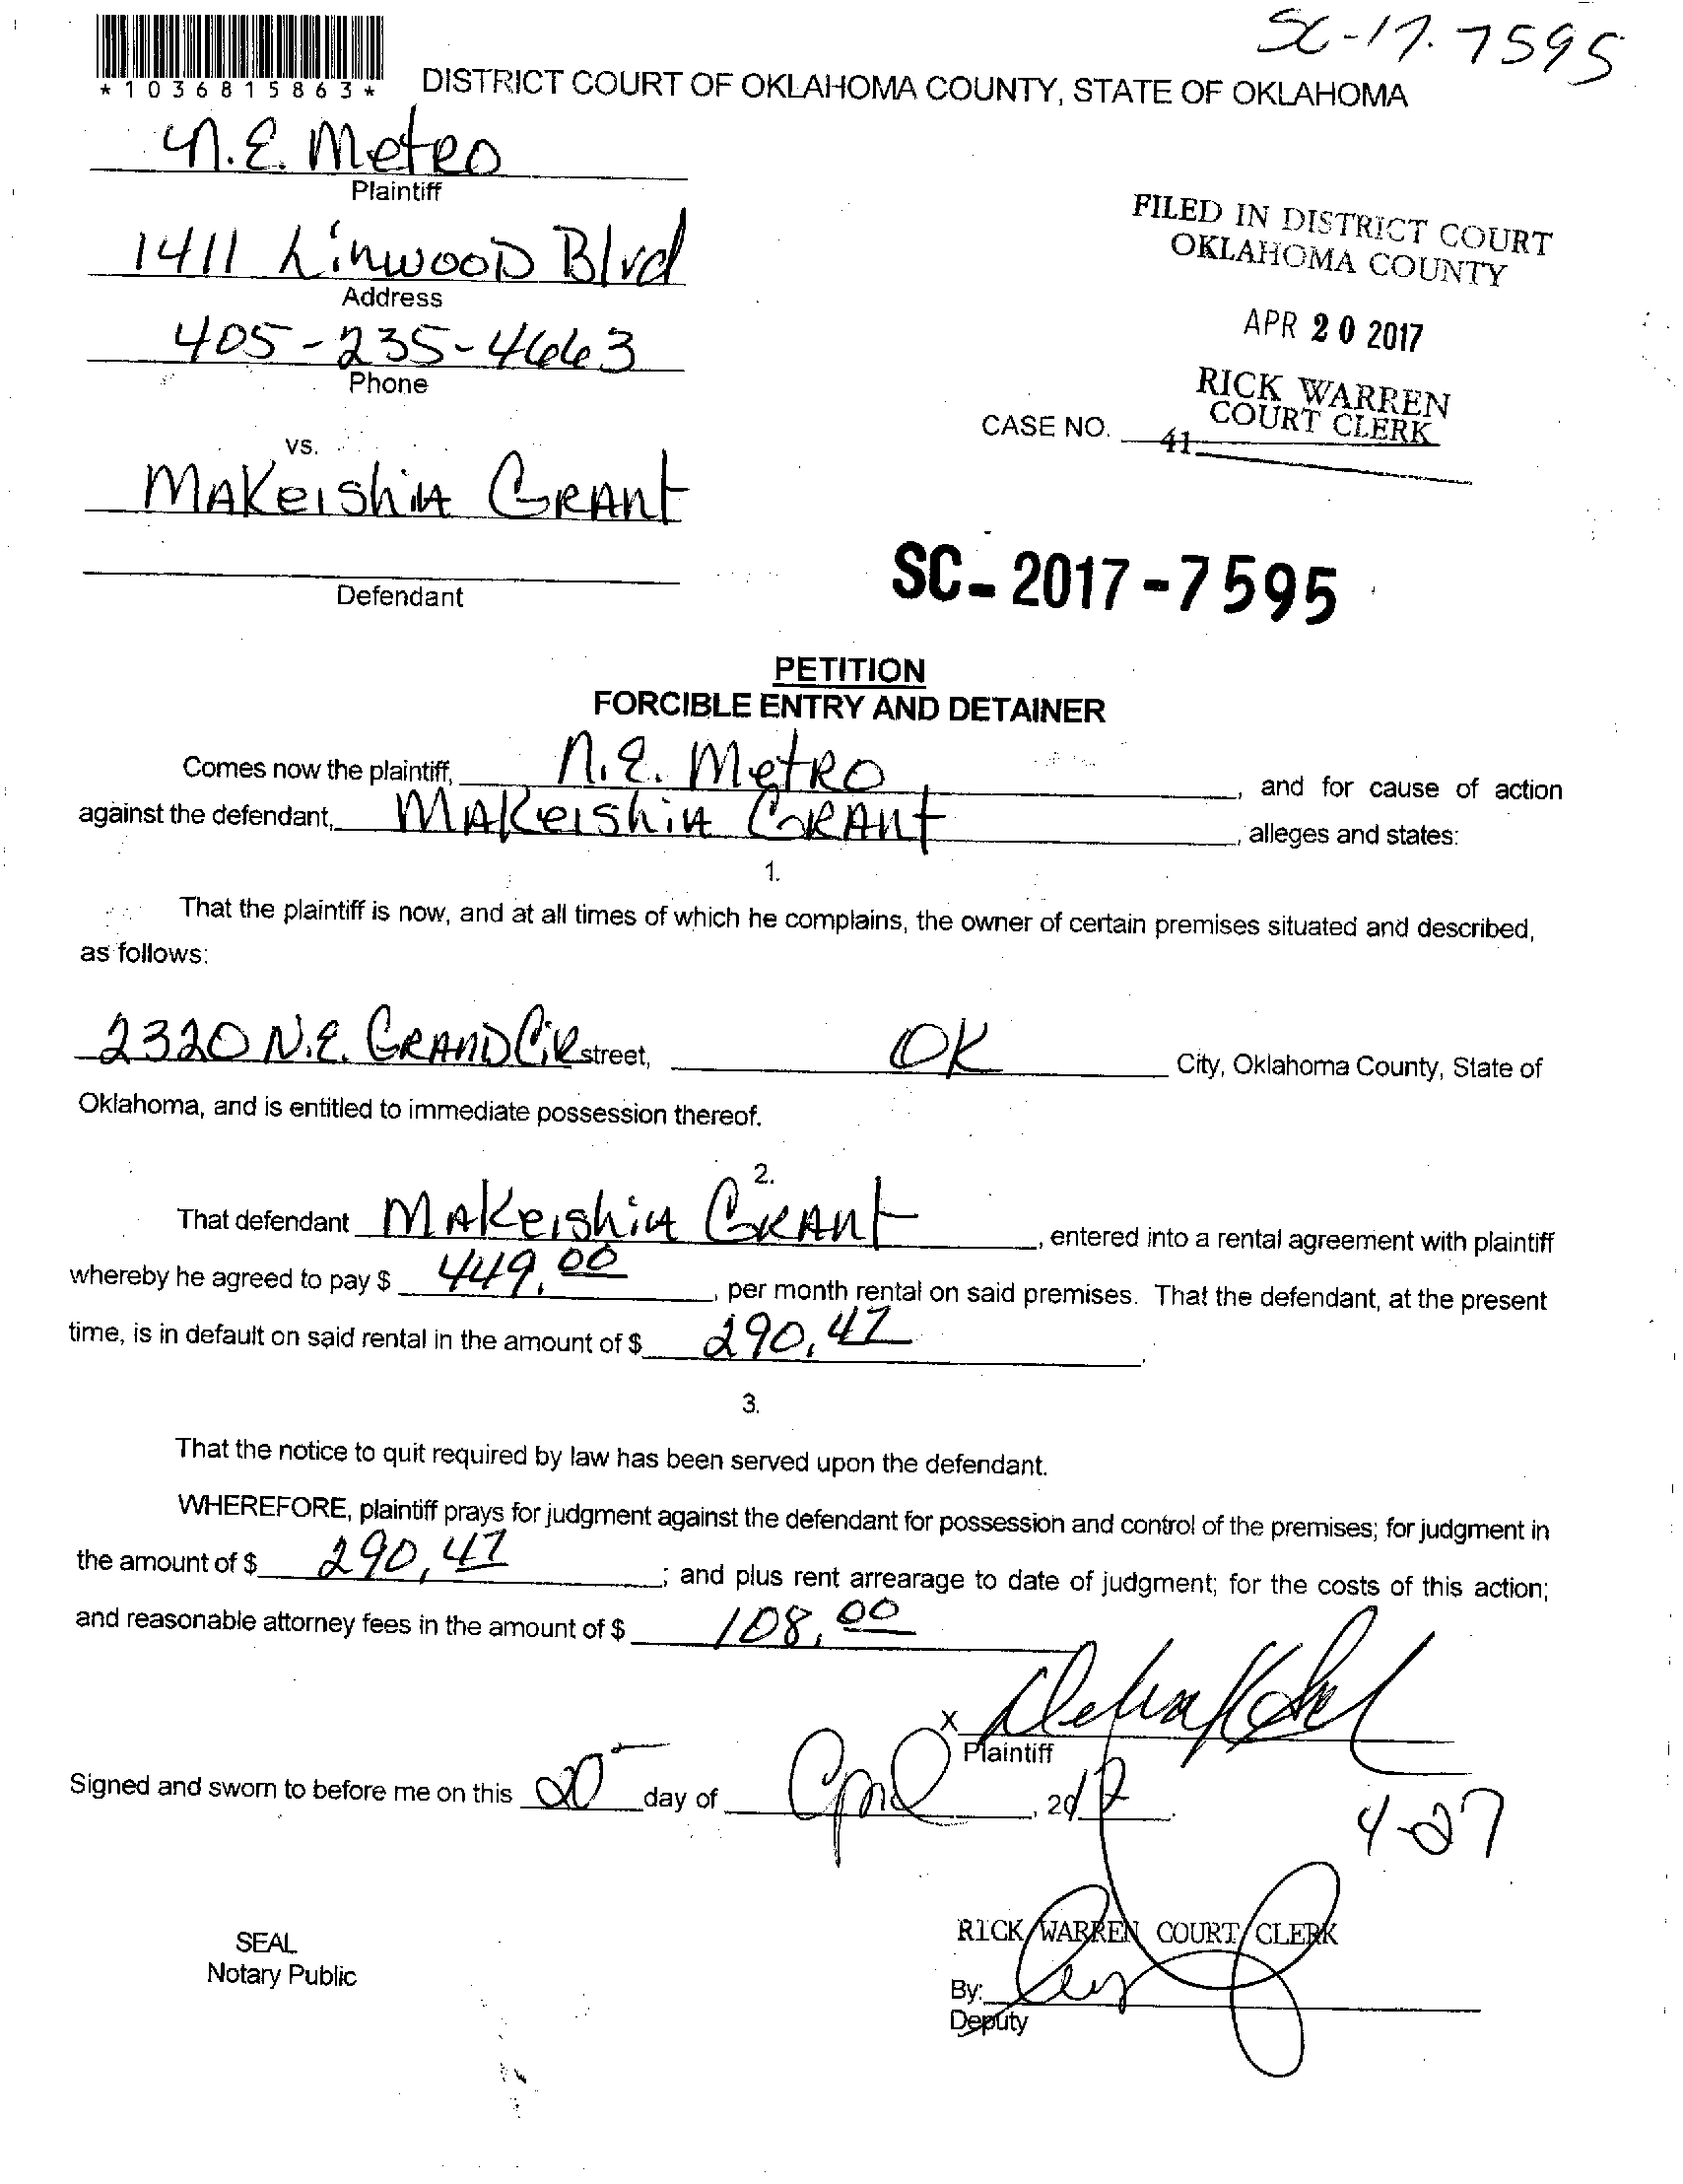 SC-17-7595
*1036815863*
DISTRICT COURT OF OKLAHOMA COUNTY, STATE OF OKLAHOMA
N.E. Metro
Plaintiff
1411 Linwood Blvd
Address
405-235-4663
Phone
FILED IN DISTRICT COURT
OKLAHOMA COUNTY
APR 20 2017
RICK WARREN
COURT CLERK
CASE NO. 41
vs.
MAKeishiA GRANt
Defendant
SC-2017-7595
PETITION
FORCIBLE ENTRY AND DETAINER
Comes now the plaintiff, N.E. MetRO, and for cause of action
against the defendant, MAKeishiA GRANt, alleges and states:
1.
That the plaintiff is now, and at all times of which he complains, the owner of certain premises situated and described,
as follows:
2320 N.E. GRAND CiR street, OK City, Oklahoma County, State of
Oklahoma, and is entitled to immediate possession thereof.
2.
That defendant MAKeishiA GRANt, entered into a rental agreement with plaintiff
whereby he agreed to pay $ 449.00, per month rental on said premises. That the defendant, at the present
time, is in default on said rental in the amount of $ 290.47.
3.
That the notice to quit required by law has been served upon the defendant.
WHEREFORE, plaintiff prays for judgment against the defendant for possession and control of the premises; for judgment in
the amount of $ 290.47; and plus rent arrearage to date of judgment; for the costs of this action;
and reasonable attorney fees in the amount of $ 108.00
X
Plaintiff
Signed and sworn to before me on this 20 day of April, 2017.
4-27
SEAL
Notary Public
RICK WARREN COURT CLERK
By:
Deputy